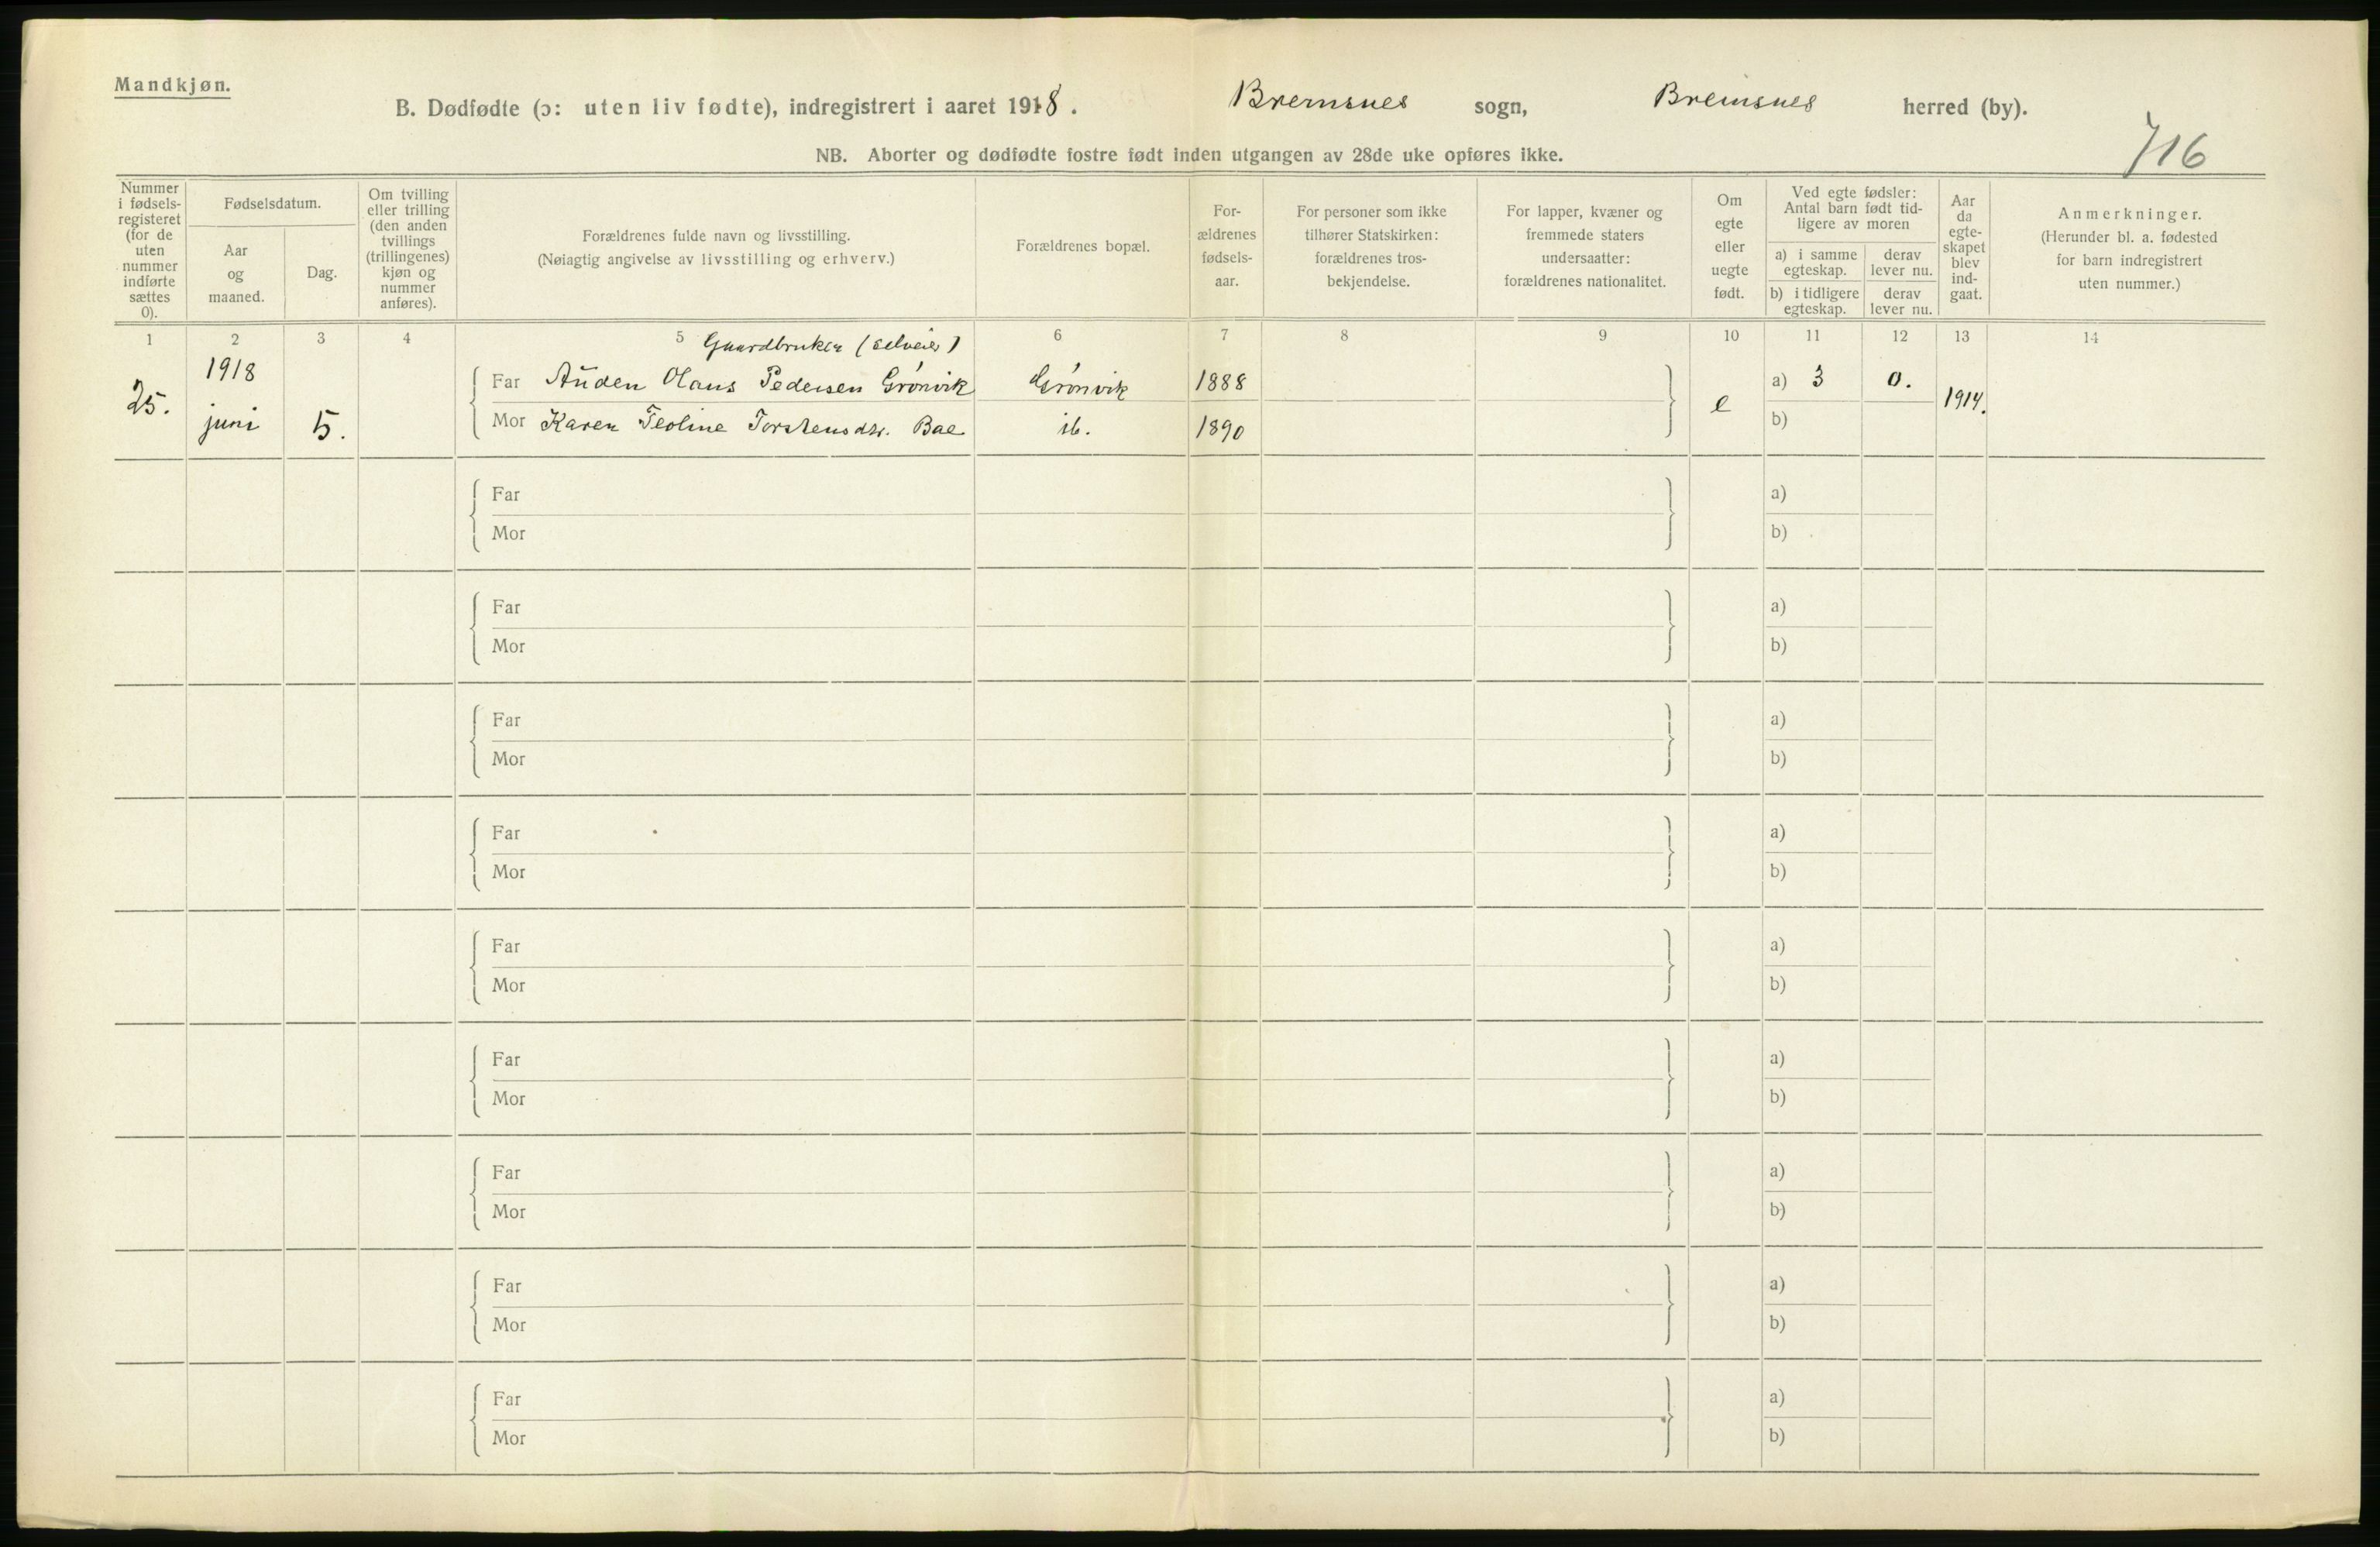 Mandkjøn.
B. Dødfødte (ɔ: uten liv fødte), indregistrert i aaret 1918. Bremsnes sogn, Bremsnes herred (by).
716
NB. Aborter og dødfødte fostre født inden utgangen av 28de uke opføres ikke.
Nummer i fødsels-registeret (for de uten nummer indførte sættes 0).
Fødselsdatum.
Aar og maaned.
Dag.
Om tvilling eller trilling (den anden tvillings (trillingenes) kjøn og nummer anføres).
Forældrenes fulde navn og livsstilling.
(Nøiagtig angivelse av livsstilling og erhverv.)
Forældrenes bopæl.
For-ældrenes fødsels-aar.
For personer som ikke tilhører Statskirken: forældrenes tros-bekjendelse.
For lapper, kvæner og fremmede staters undersaatter: forældrenes nationalitet.
Om egte eller uegte født.
Ved egte fødsler: Antal barn født tid-ligere av moren
a) i samme egteskap.
derav lever nu.
b) i tidligere egteskap.
derav lever nu.
Aar da egte-skapet blev ind-gaat.
Anmerkninger.
(Herunder bl. a. fødested for barn indregistrert uten nummer.)
1 2 3 4 5 6 7 8 9 10 11 12 13 14
Gaardbruker (selveier)
25. 1918 juni 5.
Far Auden Olaus Pedersen Grønvik Grønvik 1888 e a) 3 0. 1914.
Mor Karen Teoline Torstensdtr. Bae ib. 1890 b)
Far a)
Mor b)
Far a)
Mor b)
Far a)
Mor b)
Far a)
Mor b)
Far a)
Mor b)
Far a)
Mor b)
Far a)
Mor b)
Far a)
Mor b)
Far a)
Mor b)